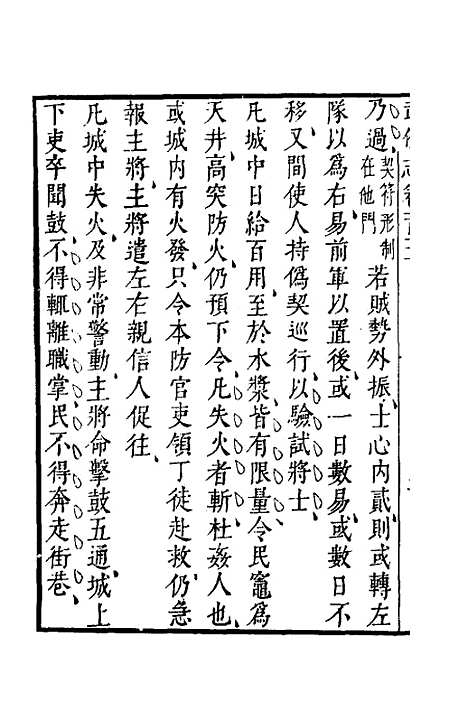 乃過契符形制在他門若賊勢外振士心內貳則或轉左
隊以為右易前軍以置後或一日數易或數日不
移又間使人持偽契巡行以驗試將士
凡城中日給百用至於水漿皆有限量令民竈為
天井高突防火仍預下令凡失火者斬杜姦人也
或城內有火發只令本防官吏領丁徒赴救仍急
報主將主將遣左右親信人促往
凡城中失火及非常警動主將命擊鼓五通城上
下吏卒聞鼓不得輒離職掌民不得奔走街巷